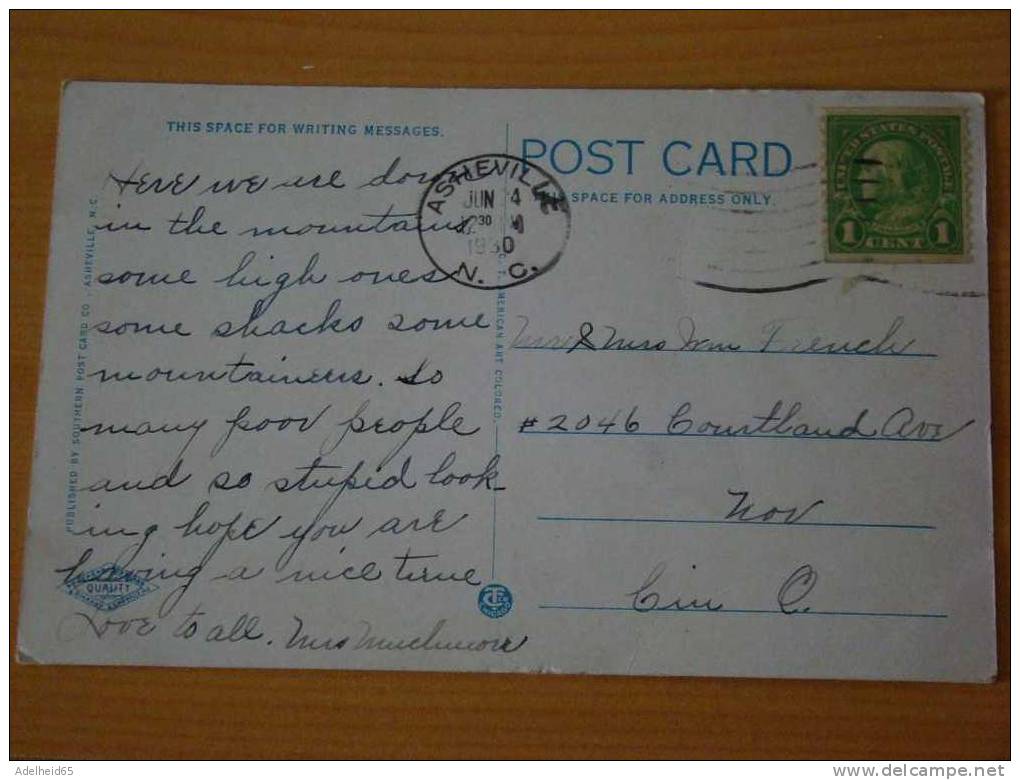 THIS SPACE FOR WRITING MESSAGES.
Here we are down
in the mountains
some high ones
some shacks some
mountainers. So
many poor people
and so stupid look-
ing hope you are
having a nice time
Love to all. Mrs Muchmore
PUBLISHED BY SOUTHERN POST CARD CO., ASHEVILLE, N.C.
QUALITY
AMERICAN ART COLORED.
ASHEVILLE
JUN 4
30
1930
N. C.
POST CARD
THIS SPACE FOR ADDRESS ONLY.
UNITED STATES POSTAGE
1 CENT 1
Mr & Mrs Wm French
#2046 Courtland Ave
Nov
Cin O.
Adelheid65
http://www.delcampe.net